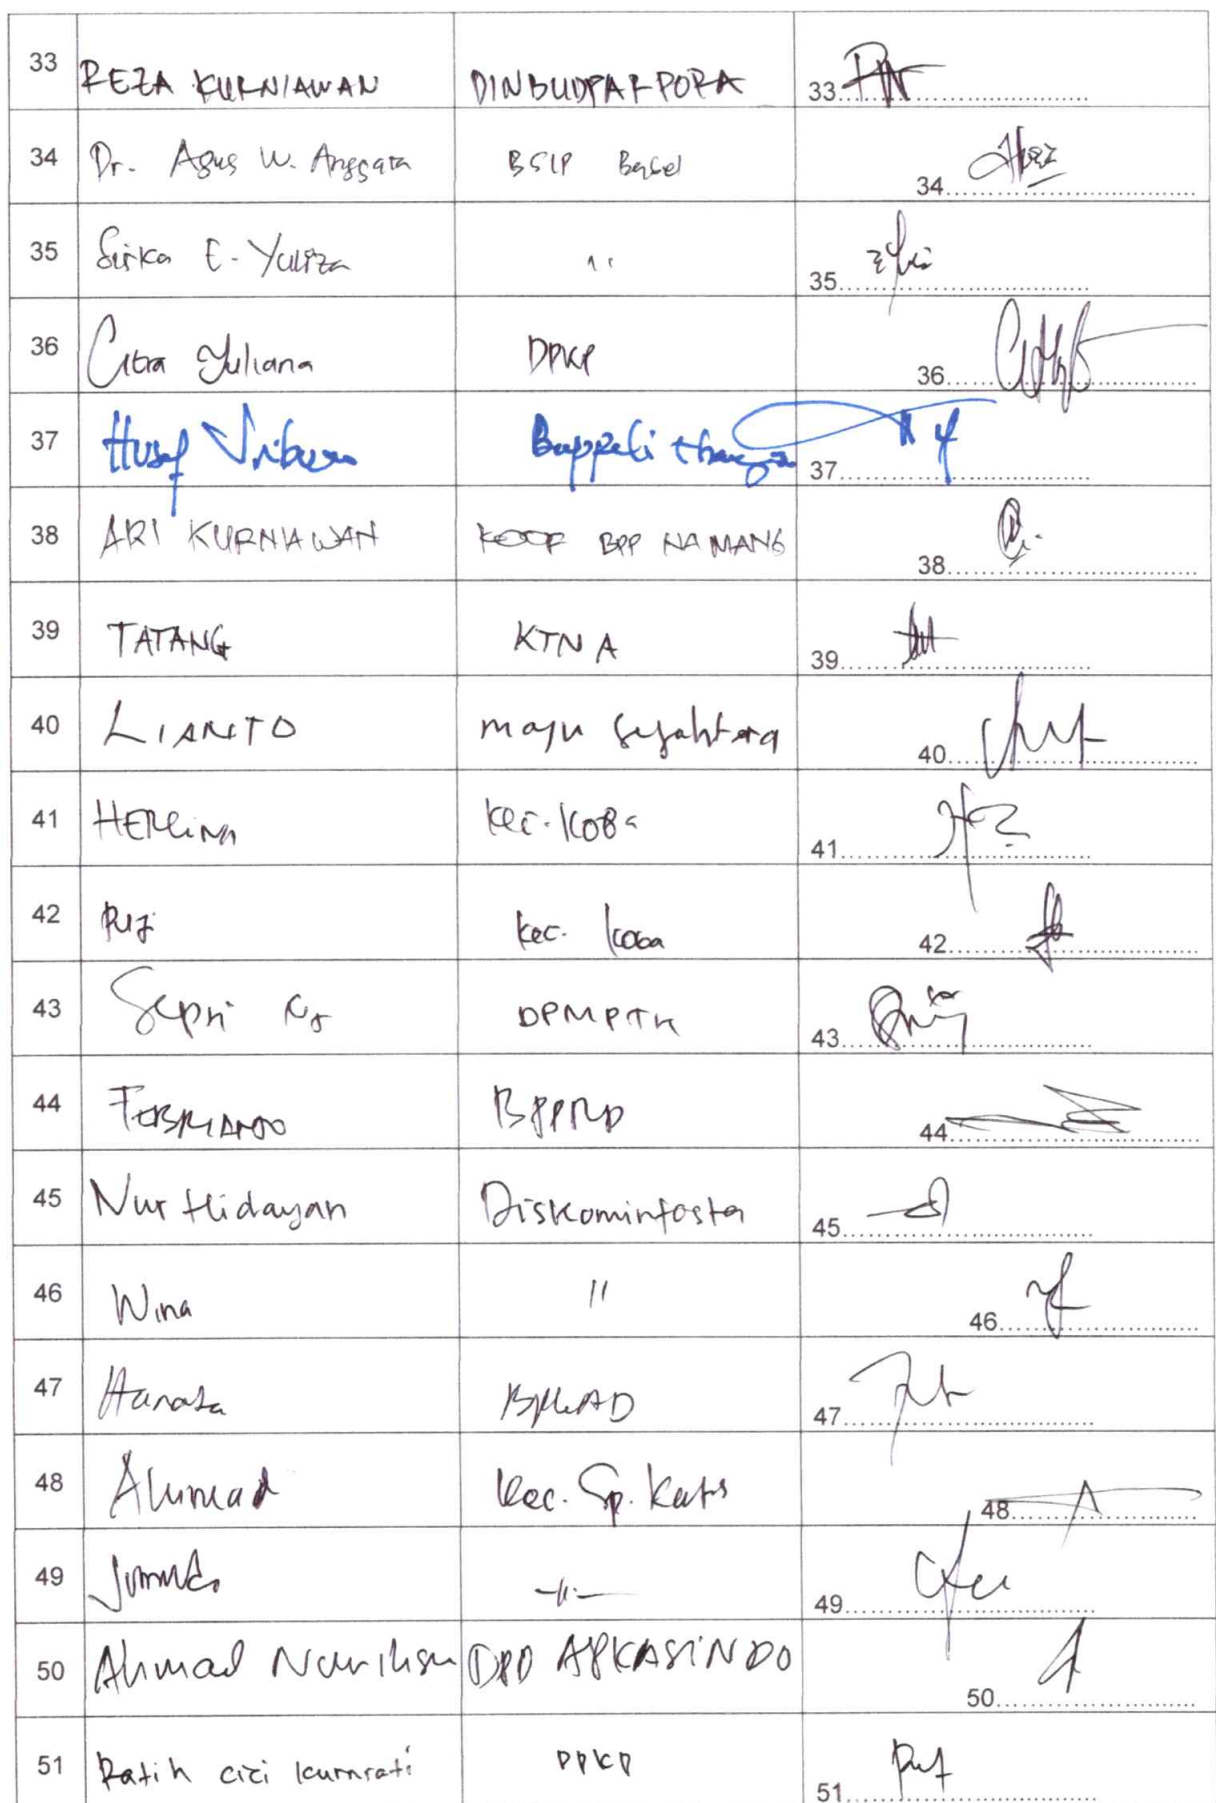 33 REZA KURNIAWAN DINBUDPARPORA 33
34 Dr. Agus W. Anggara BSIP Basel 34
35 Siska E. Yuliza " 35
36 Citra Yuliana DPKP 36
37 37
38 ARI KURNIAWAN KOOR BPP NAMANG 38
39 TATANG KTNA 39
40 LIANTO maju sejahtera 40
41 HERLINA Kec. Koba 41
42 Kec. Koba 42
43 Sepri DPMPTK 43
44 FEBRIANDO BPPRD 44
45 Nur Hidayah Diskominfosta 45
46 Wina " 46
47 BPKAD 47
48 Ahmad Kec. Sp. Katis 48
49 -"- 49
50 Ahmad DPD APKASINDO 50
51 Ratih cici kurniati DPKP 51